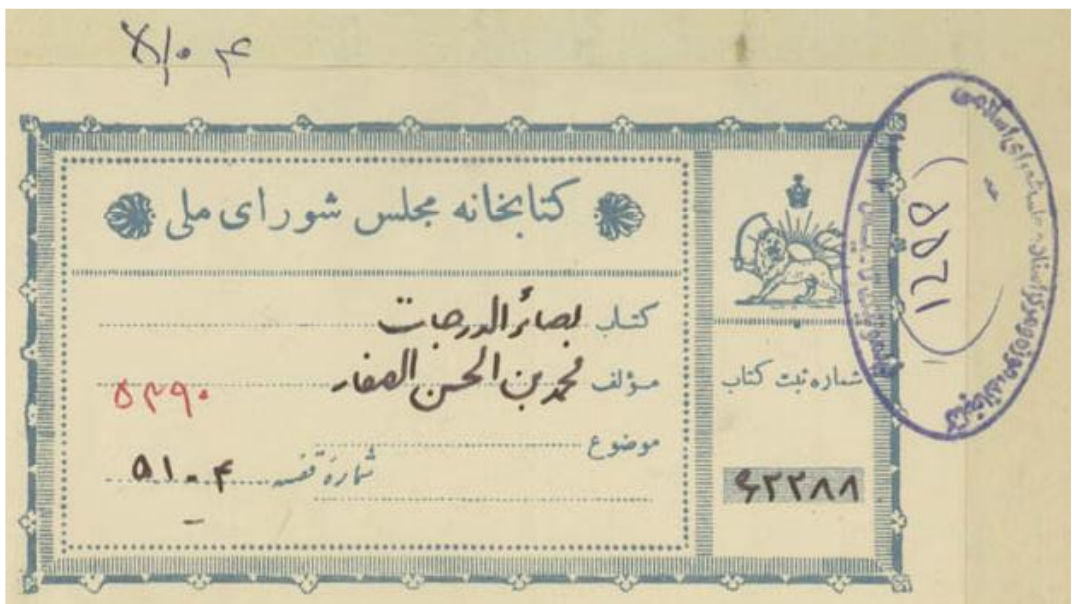 کتابخانه مجلس شورای ملی
کتاب بصائر الدرجات
مؤلف محمد بن الحسن الصفار
۵۲۹۰
موضوع
شمارهٔ قفسه ۵۱۰۴
شماره ثبت کتاب
۶۲۲۸۸